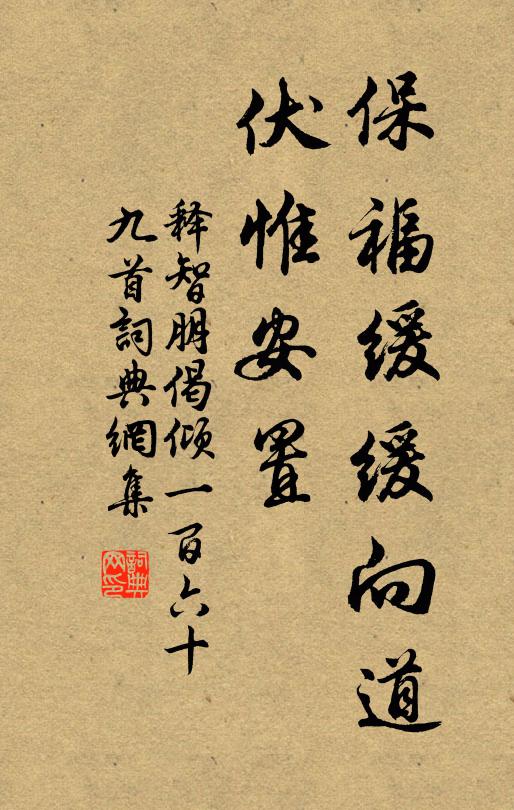 保福緩緩向道
伏惟安置
释智朋偈倾一百六十
九首詞典網集
詞典
网印